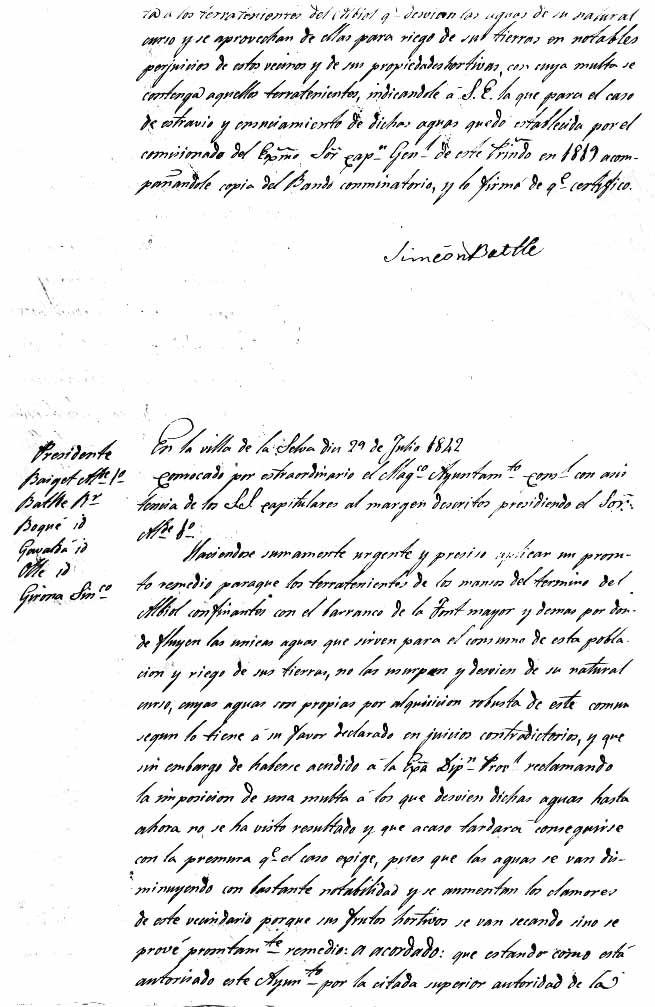 ta a los terratenientes del Albiol q.e desvien las aguas de su natural
curso y se aprovechan de ellas para riego de sus tierras en notables
perjuicios de estos vecinos y de sus propiedades hortivas, con cuya multa se
contenga aquellos terratenientes, indicandole á S.E. la que para el caso
de estravio y ensuciamiento de dichas aguas quedó establecida por el
comisionado del Exmo Sor Cap.n Gen.l de este Prindo en 1819 acom-
pañandole copia del Bando conminatorio, y lo firmó de q.e certifico.
Simeón Batlle
En la villa de la Selva dia 29 de Julio 1842
Presidente
Baiget Alde 1o
Batlle Rr
Boqué id
Gavaldá id
Olle id
Girona Sinco
Convocado por estraordinario el Magco Ayuntamto Consl con asis
tencia de los S.S. capitulares al margen descritos presidiendo el Sor
Alde 1o
Haciendose sumamente urgente y preciso aplicar un prom-
to remedio paraque los terratenientes de los mansos del termino del
Albiol confinantes con el barranco de la Font mayor y demas por don-
de fluyen las unicas aguas que sirven para el consumo de esta pobla-
cion y riego de sus tierras, no las usurpen y desvien de su natural
curso, cuyas aguas son propias por alquisicion robusta de este comun
segun lo tiene á su favor declarado en juicios contradictorios, y que
sin embargo de haberse acudido á la Exa Dipn Provl reclamando
la imposicion de una multa á los que desvien dichas aguas hasta
ahora no se ha visto resultado y que acaso tardará conseguirse
con la premura q.e el caso exige, pues que las aguas se van dis-
minuyendo con bastante notabilidad y se aumentan los clamores
de este vecindario porque sus frutos hortivos se van secando sino se
prové promtamte remedio: a acordado: que estando como está
autorisado este Ayunto por la citada superior autoridad de la